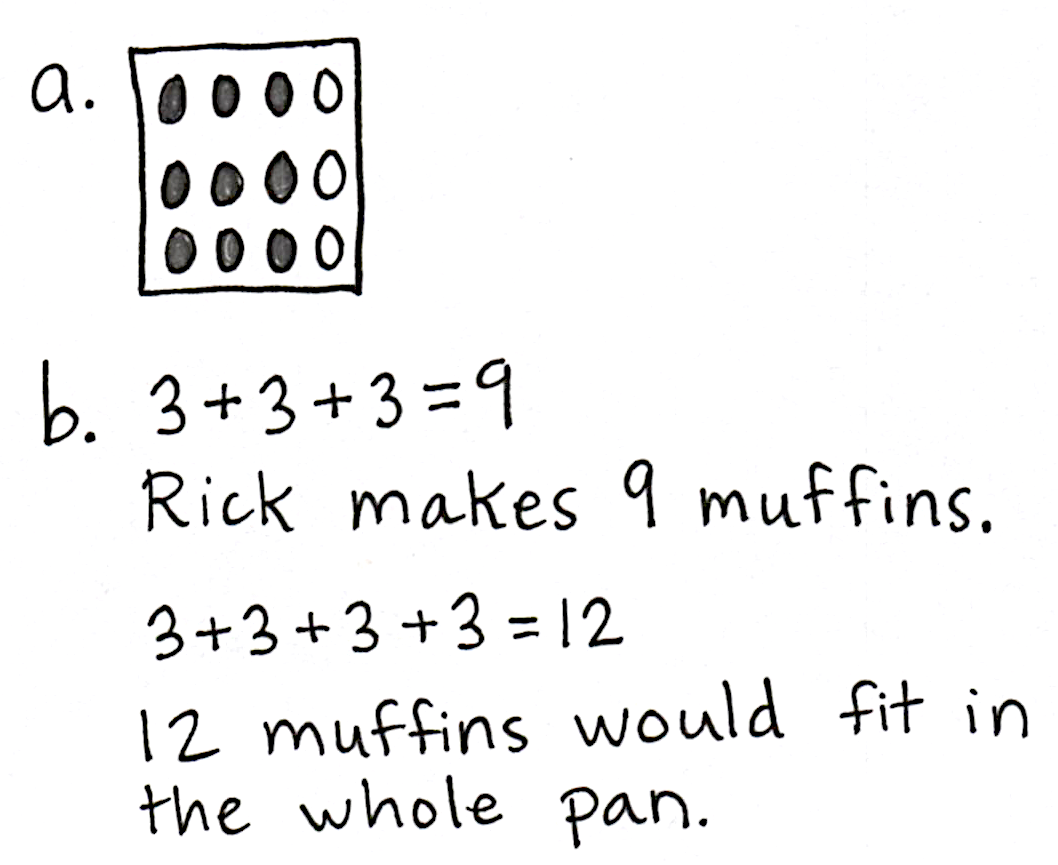 a.
b. 3+3+3=9
Rick makes 9 muffins.
3+3+3+3=12
12 muffins would fit in
the whole pan.